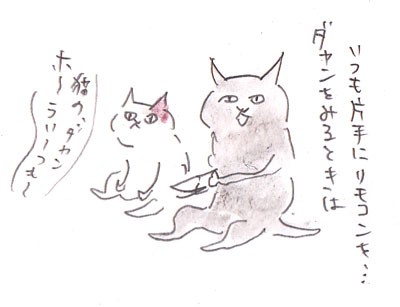 いつも片手にリモコンを…
ダヤンをみるときは
猫のダヤン
ホ〜ラいーつも〜